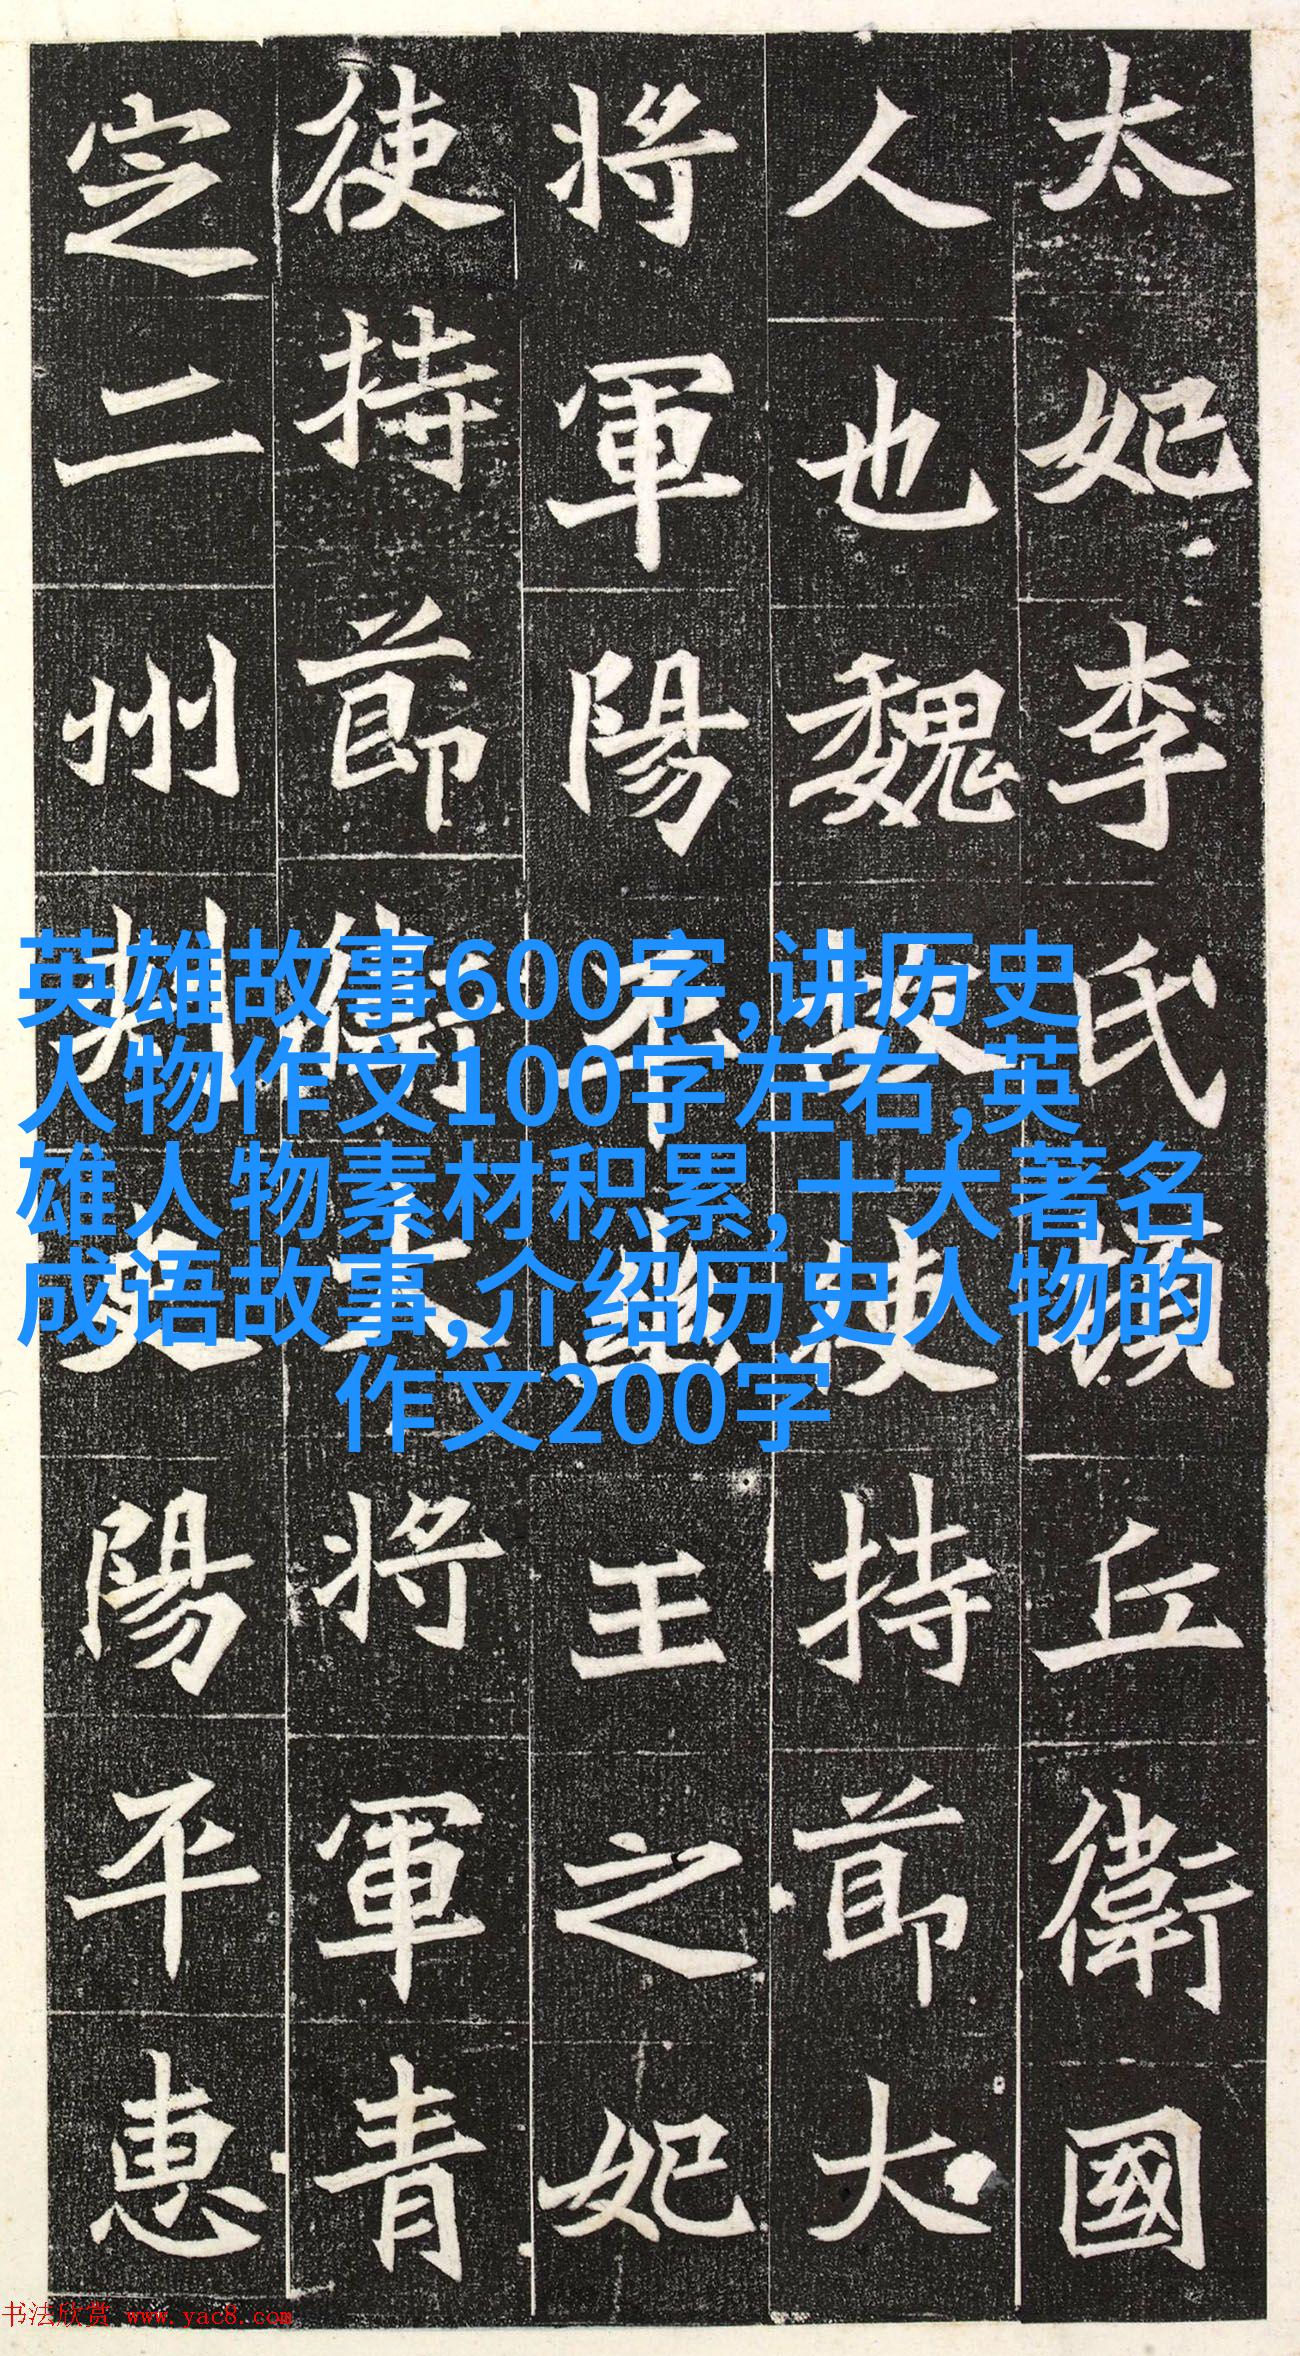 太妃李氏頓丘衛國
人也魏故使持節大
將軍陽平幽王之妃
使持節衛大將軍青
定二州刺史陽平惠
英雄故事600字,讲历史
人物作文100字左右,英
雄人物素材积累,十大著名
成语故事,介绍历史人物的
作文200字
书法欣赏 www.yac8.com